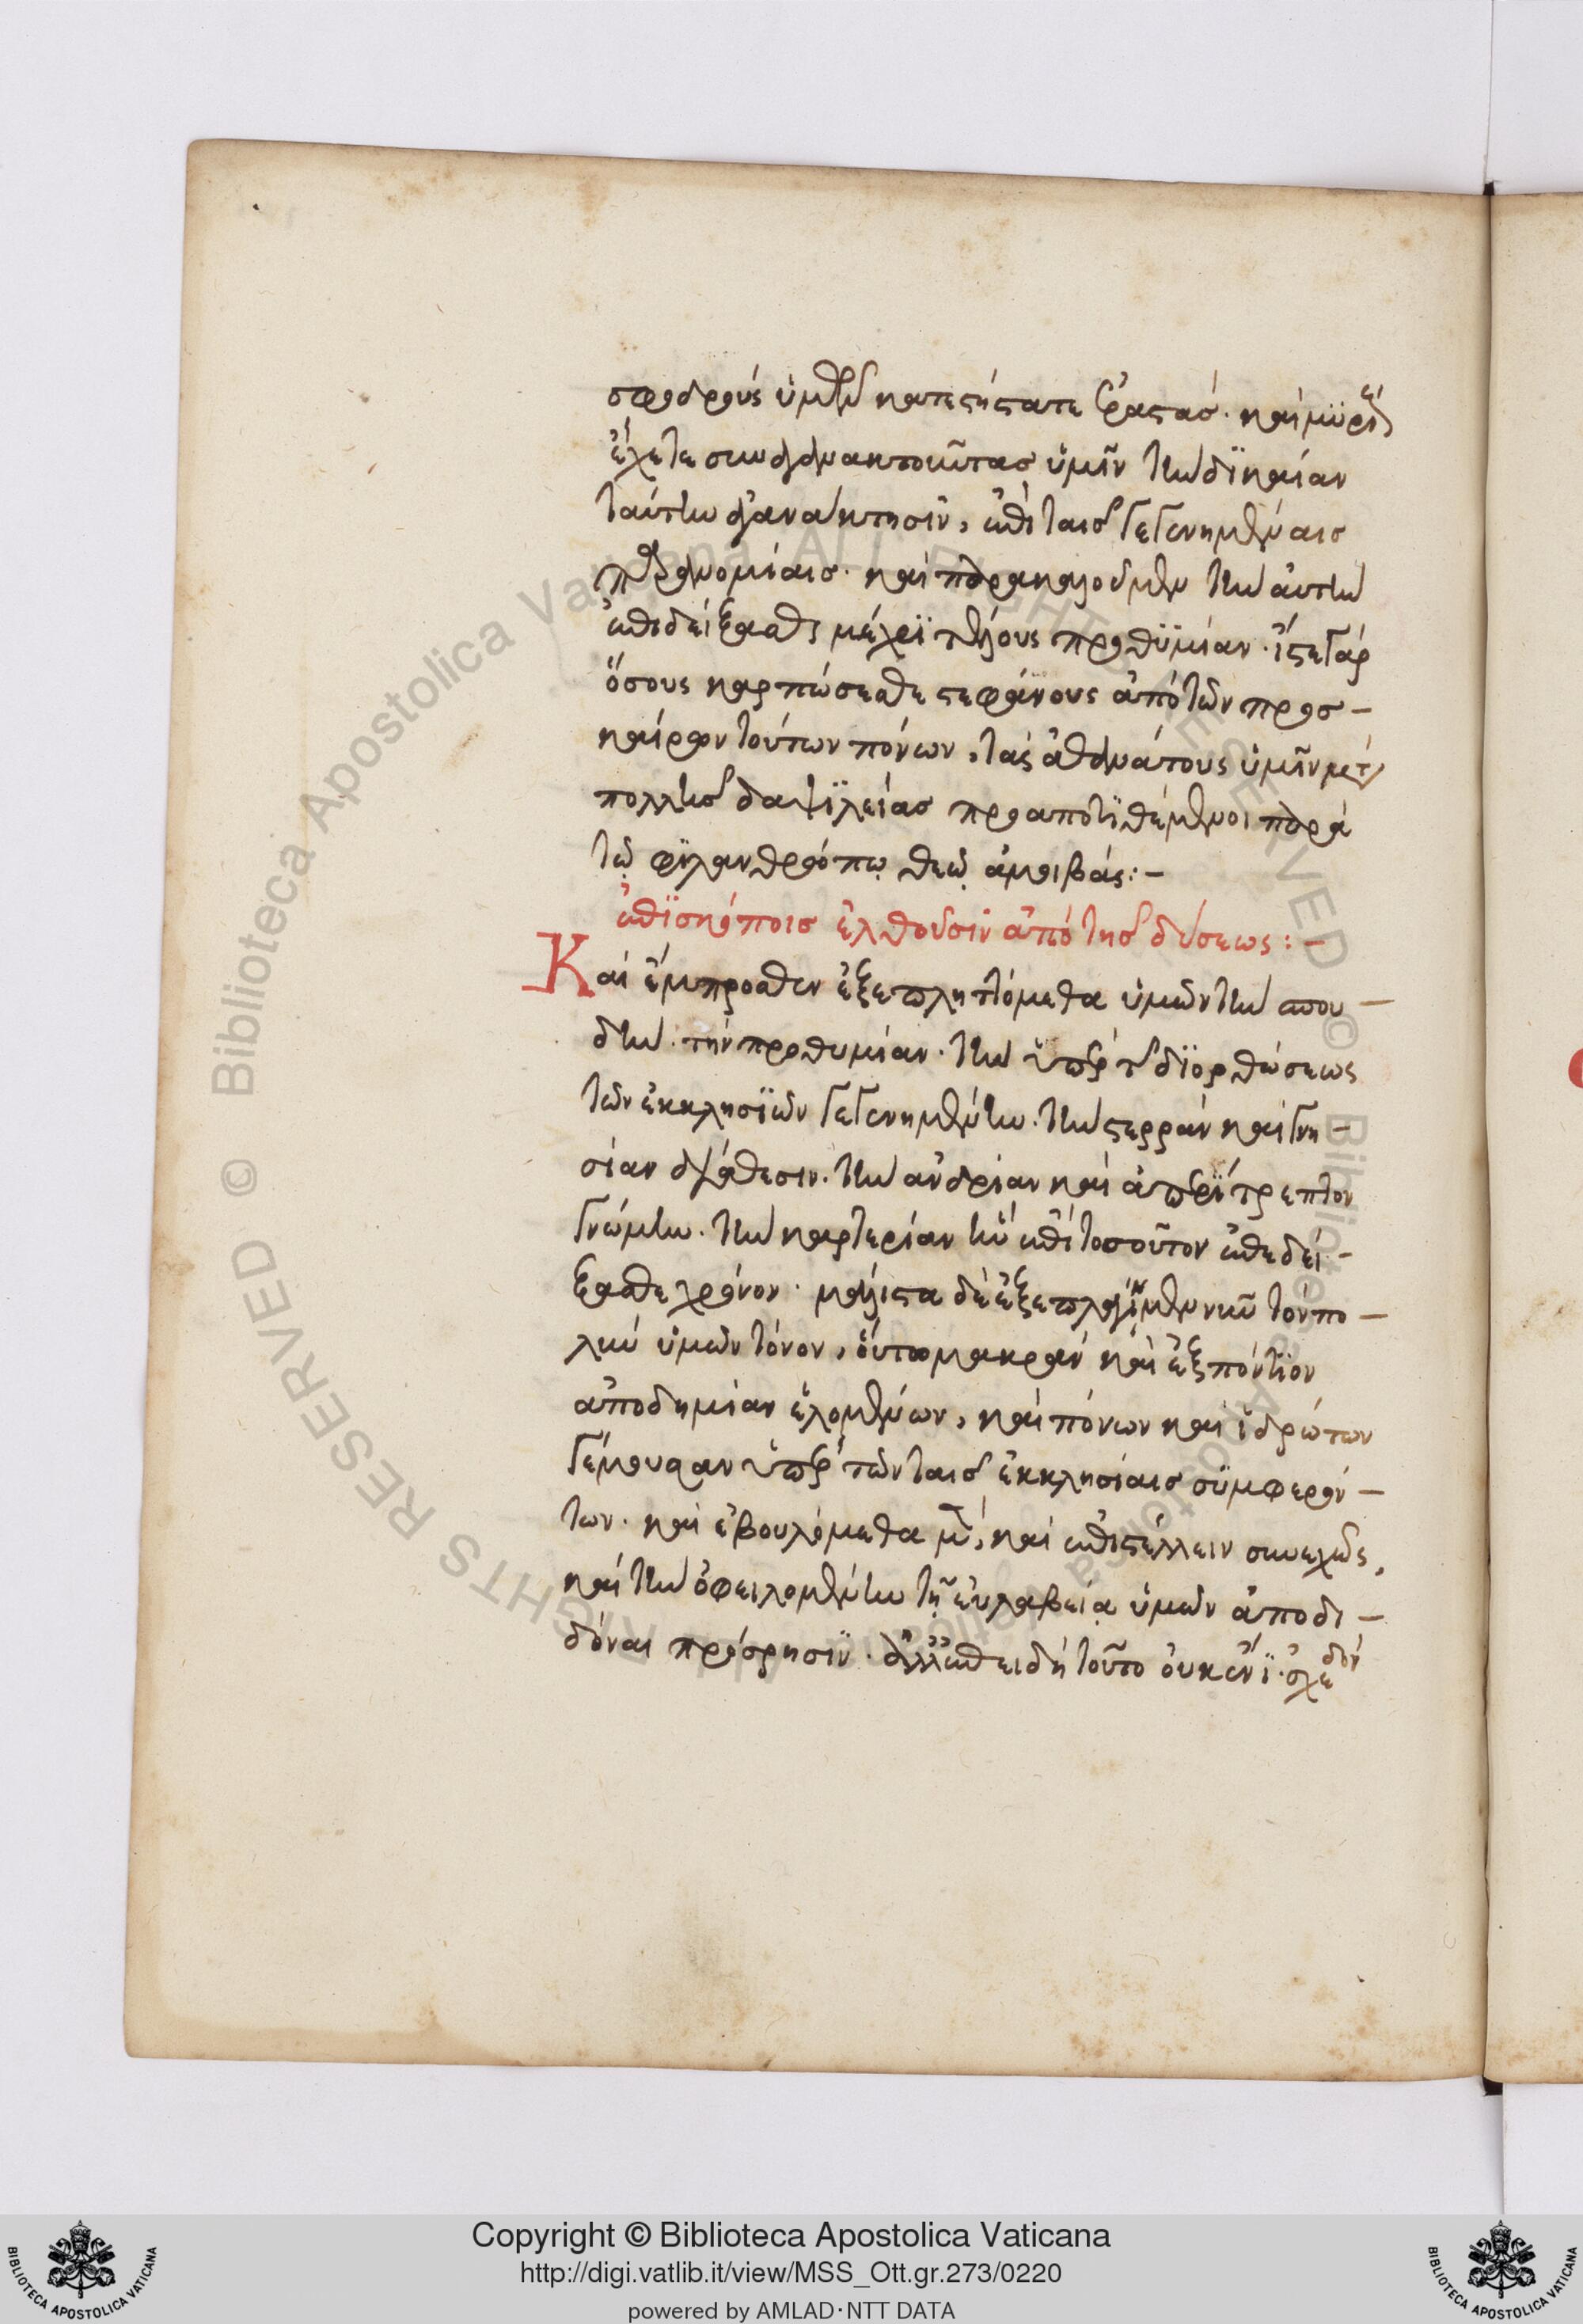 σφοδρούς ὑμῶν κατεστήσατε ἐραστάσ. καὶ μυρί
ἔχετε συναγανακτοῦντασ ὑμῖν τὴν δικαίαν
ταύτην ἀγανάκτησιν, ἐπὶ ταῖσ γεγενημέναισ
παρανομίαισ. καὶ παρακαλοῦμεν τὴν αὐτὴν
ἐπιδείξασθαι μέχρι τέλους προθυμίαν. ἴστε γάρ
ὅσους καρπώσεσθε στεφάνους ἀπὸ τῶν προσ-
καίρων τούτων πόνων, τὰς ἀθανάτους ὑμῖν μετὰ
πολλῆσ δαψιλείασ προαποτιθέμενοι παρὰ
τῷ φιλανθρώπῳ θεῷ ἀμοιβάς:-
ἐπισκόποισ ἐλθοῦσιν ἀπὸ τῆσ δύσεως:-
Καὶ ἔμπροσθεν ἐξεπληττόμεθα ὑμῶν τὴν σπου-
δὴν. τὴν προθυμίαν. τὴν ὑπὲρ τῆσ διορθώσεως
τῶν ἐκκλησιῶν γεγενημένην. τὴν στερρὰν καὶ γνη-
σίαν διάθεσιν. τὴν ἀνδρίαν καὶ ἀπερίτρεπτον
γνώμην. τὴν καρτερίαν ἣν ἐπὶ τοσοῦτον ἐπεδεί-
ξασθε χρόνον. μάλιστα δὲ ἐξεπλάγημεν νῦν τὸν πο-
λὺν ὑμῶν τόνον, οὕτω μακρὰν καὶ ἐξ πόντιον
ἀποδημίαν ἑλομένων, καὶ πόνων καὶ ἱδρώτων
γέμουσαν ὑπὲρ τῶν ταῖσ ἐκκλησίαισ συμφερόν-
των. καὶ ἐβουλόμεθα μὲν, καὶ ἐπιστέλλειν συνεχῶς,
καὶ τὴν ὀφειλομένην τῇ εὐλαβείᾳ ὑμῶν ἀποδι-
δόναι πρόσρησιν. ἀλλ' ἐπειδὴ τοῦτο οὐκ ἔνι. σχεδὸν